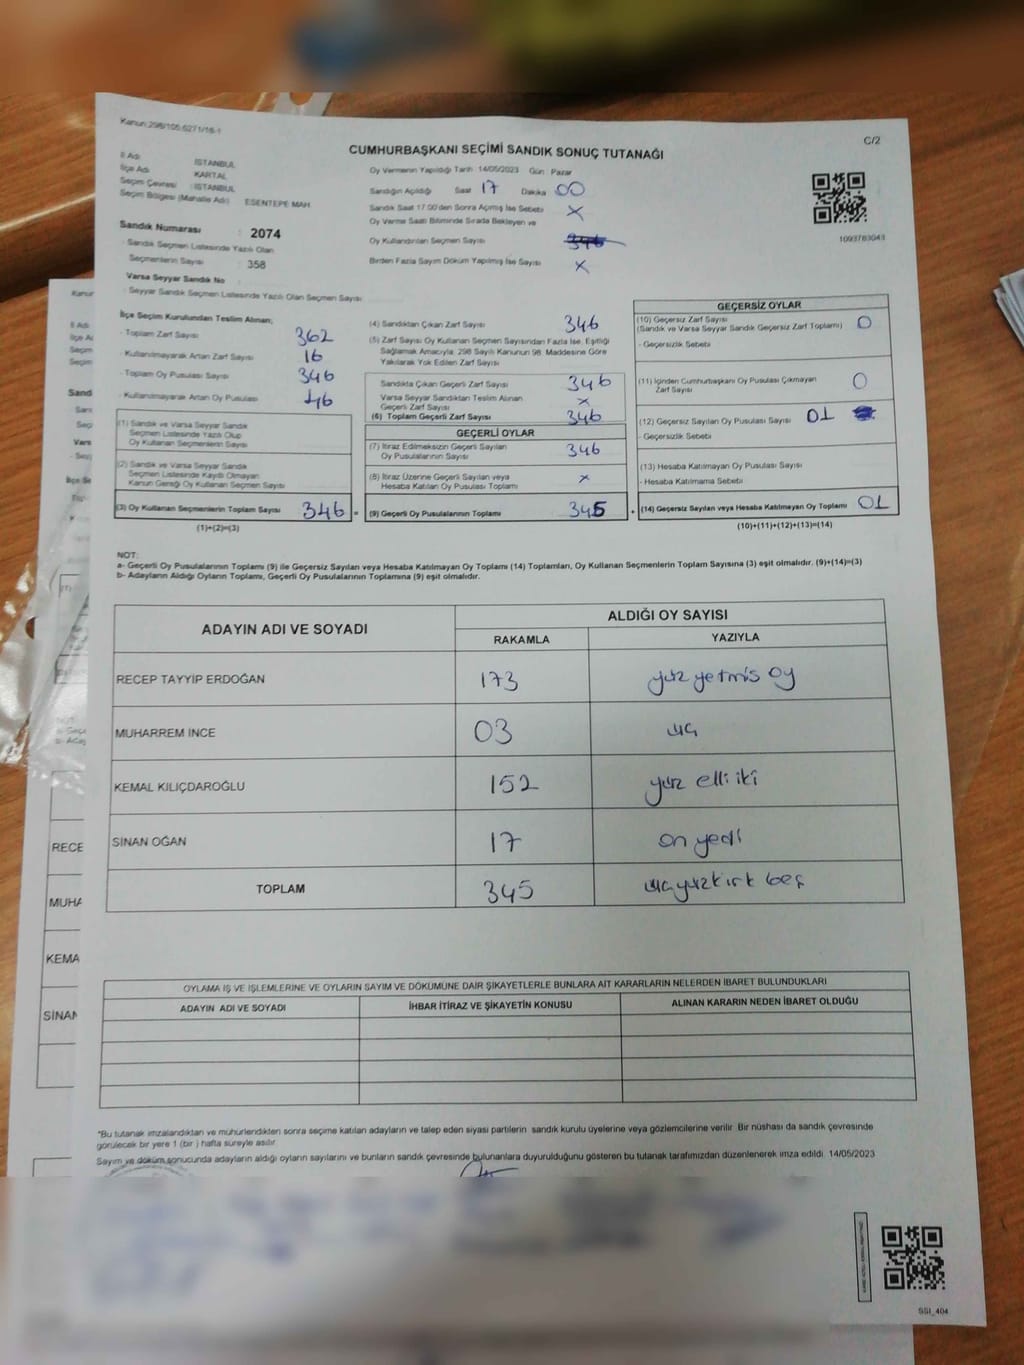 Kanun:298/105,6271/16-1
C/2
CUMHURBAŞKANI SEÇİMİ SANDIK SONUÇ TUTANAĞI
İl Adı : İSTANBUL
İlçe Adı : KARTAL
Seçim Çevresi : İSTANBUL
Seçim Bölgesi (Mahalle Adı) : ESENTEPE MAH.
Sandık Numarası : 2074
- Sandık Seçmen Listesinde Yazılı Olan
Seçmenlerin Sayısı : 358
Varsa Seyyar Sandık No :
- Seyyar Sandık Seçmen Listesinde Yazılı Olan Seçmen Sayısı
Oy Vermenin Yapıldığı Tarih 14/05/2023 Gün Pazar
Sandığın Açıldığı Saat 17 Dakika 00
Sandık Saat 17:00'den Sonra Açılmış İse Sebebi X
Oy Verme Saati Bitiminde Sırada Bekleyen ve
Oy Kullandırılan Seçmen Sayısı 346
Birden Fazla Sayım Döküm Yapılmış İse Sayısı X
1093783043
İlçe Seçim Kurulundan Teslim Alınan;
- Toplam Zarf Sayısı 362
- Kullanılmayarak Artan Zarf Sayısı 16
- Toplam Oy Pusulası Sayısı 346
- Kullanılmayarak Artan Oy Pusulası
(1) Sandık ve Varsa Seyyar Sandık
Seçmen Listesinde Yazılı Olup
Oy Kullanan Seçmenlerin Sayısı
(2) Sandık ve Varsa Seyyar Sandık
Seçmen Listesinde Kayıtlı Olmayan
Kanun Gereği Oy Kullanan Seçmen Sayısı
(3) Oy Kullanan Seçmenlerin Toplam Sayısı 346 =
(1)+(2)=(3)
(4) Sandıktan Çıkan Zarf Sayısı 346
(5) Zarf Sayısı Oy Kullanan Seçmen Sayısından Fazla İse, Eşitliği
Sağlamak Amacıyla; 298 Sayılı Kanunun 98. Maddesine Göre
Yakılarak Yok Edilen Zarf Sayısı
Sandıkta Çıkan Geçerli Zarf Sayısı 346
Varsa Seyyar Sandıktan Teslim Alınan
Geçerli Zarf Sayısı X
(6) Toplam Geçerli Zarf Sayısı 346
GEÇERLİ OYLAR
(7) İtiraz Edilmeksizin Geçerli Sayılan
Oy Pusulalarının Sayısı 346
(8) İtiraz Üzerine Geçerli Sayılan veya
Hesaba Katılan Oy Pusulası Toplamı X
(9) Geçerli Oy Pusulalarının Toplamı 345 +
GEÇERSİZ OYLAR
(10) Geçersiz Zarf Sayısı
(Sandık ve Varsa Seyyar Sandık Geçersiz Zarf Toplamı) 0
- Geçersizlik Sebebi
(11) İçinden Cumhurbaşkanı Oy Pusulası Çıkmayan
Zarf Sayısı 0
(12) Geçersiz Sayılan Oy Pusulası Sayısı 01
- Geçersizlik Sebebi
(13) Hesaba Katılmayan Oy Pusulası Sayısı
- Hesaba Katılmama Sebebi
(14) Geçersiz Sayılan veya Hesaba Katılmayan Oy Toplamı 01
(10)+(11)+(12)+(13)=(14)
NOT:
a- Geçerli Oy Pusulalarının Toplamı (9) ile Geçersiz Sayılan veya Hesaba Katılmayan Oy Toplamı (14) Toplamları, Oy Kullanan Seçmenlerin Toplam Sayısına (3) eşit olmalıdır. (9)+(14)=(3)
b- Adayların Aldığı Oyların Toplamı, Geçerli Oy Pusulalarının Toplamına (9) eşit olmalıdır.
ADAYIN ADI VE SOYADI
ALDIĞI OY SAYISI
RAKAMLA YAZIYLA
RECEP TAYYİP ERDOĞAN 173 yüz yetmis oy
MUHARREM İNCE 03 üç
KEMAL KILIÇDAROĞLU 152 yüz elli iki
SİNAN OĞAN 17 on yedi
TOPLAM 345 üçyüzkırk beş
OYLAMA İŞ VE İŞLEMLERİNE VE OYLARIN SAYIM VE DÖKÜMÜNE DAİR ŞİKAYETLERLE BUNLARA AİT KARARLARIN NELERDEN İBARET BULUNDUKLARI
ADAYIN ADI VE SOYADI İHBAR İTİRAZ VE ŞİKAYETİN KONUSU ALINAN KARARIN NEDEN İBARET OLDUĞU
*Bu tutanak imzalandıktan ve mühürlendikten sonra seçime katılan adayların ve talep eden siyasi partilerin sandık kurulu üyelerine veya gözlemcilerine verilir. Bir nüshası da sandık çevresinde
görülecek bir yere 1 (bir ) hafta süreyle asılır.
Sayım ve döküm sonucunda adayların aldığı oyların sayılarını ve bunların sandık çevresinde bulunanlara duyurulduğunu gösteren bu tutanak tarafımızdan düzenlenerek imza edildi. 14/05/2023
SSI_404
Kanun
RECE
MUHA
KEMA
SİNAN